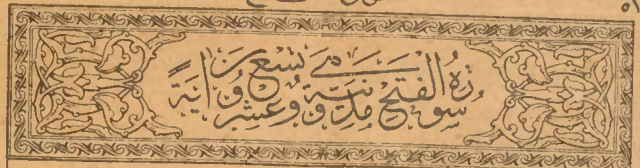 سورة الفتح مدنية وهى تسع وعشرون اية